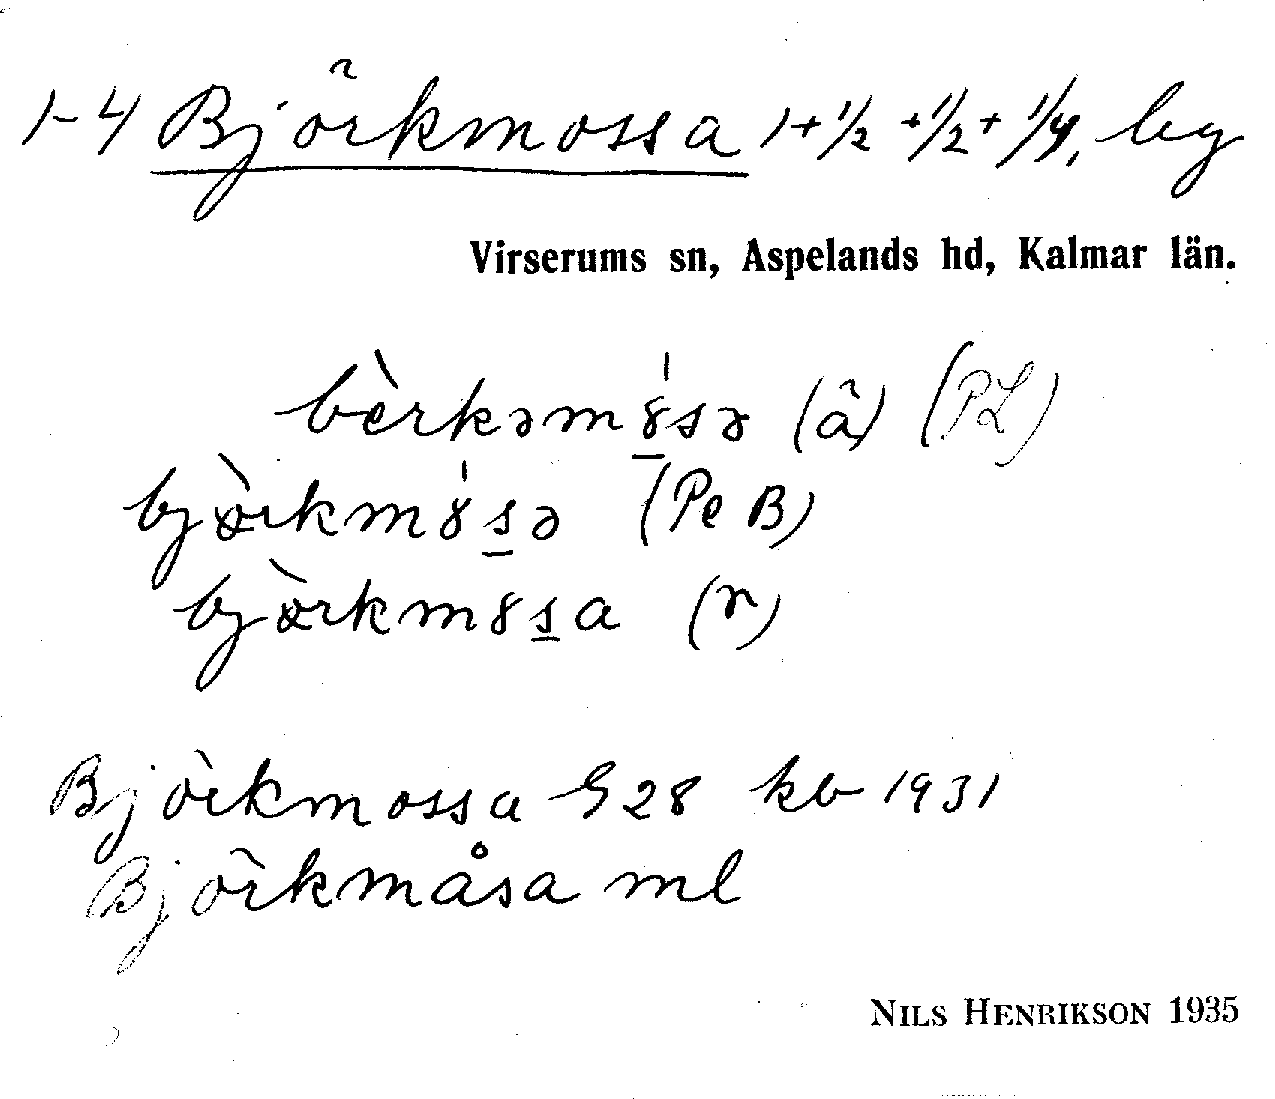 1-4 Björkmossa 1+1/2+1/2+1/4, by
Virserums sn, Aspelands hd, Kalmar län.
bèrkəmȣ́sə (â) (PL)
bjö̀rkmȣ́sə (Pe B)
bjö̀rkmȣsa (r)
Björkmossa G28 kb 1931
Björkmåsa ml
NILS HENRIKSON 1935